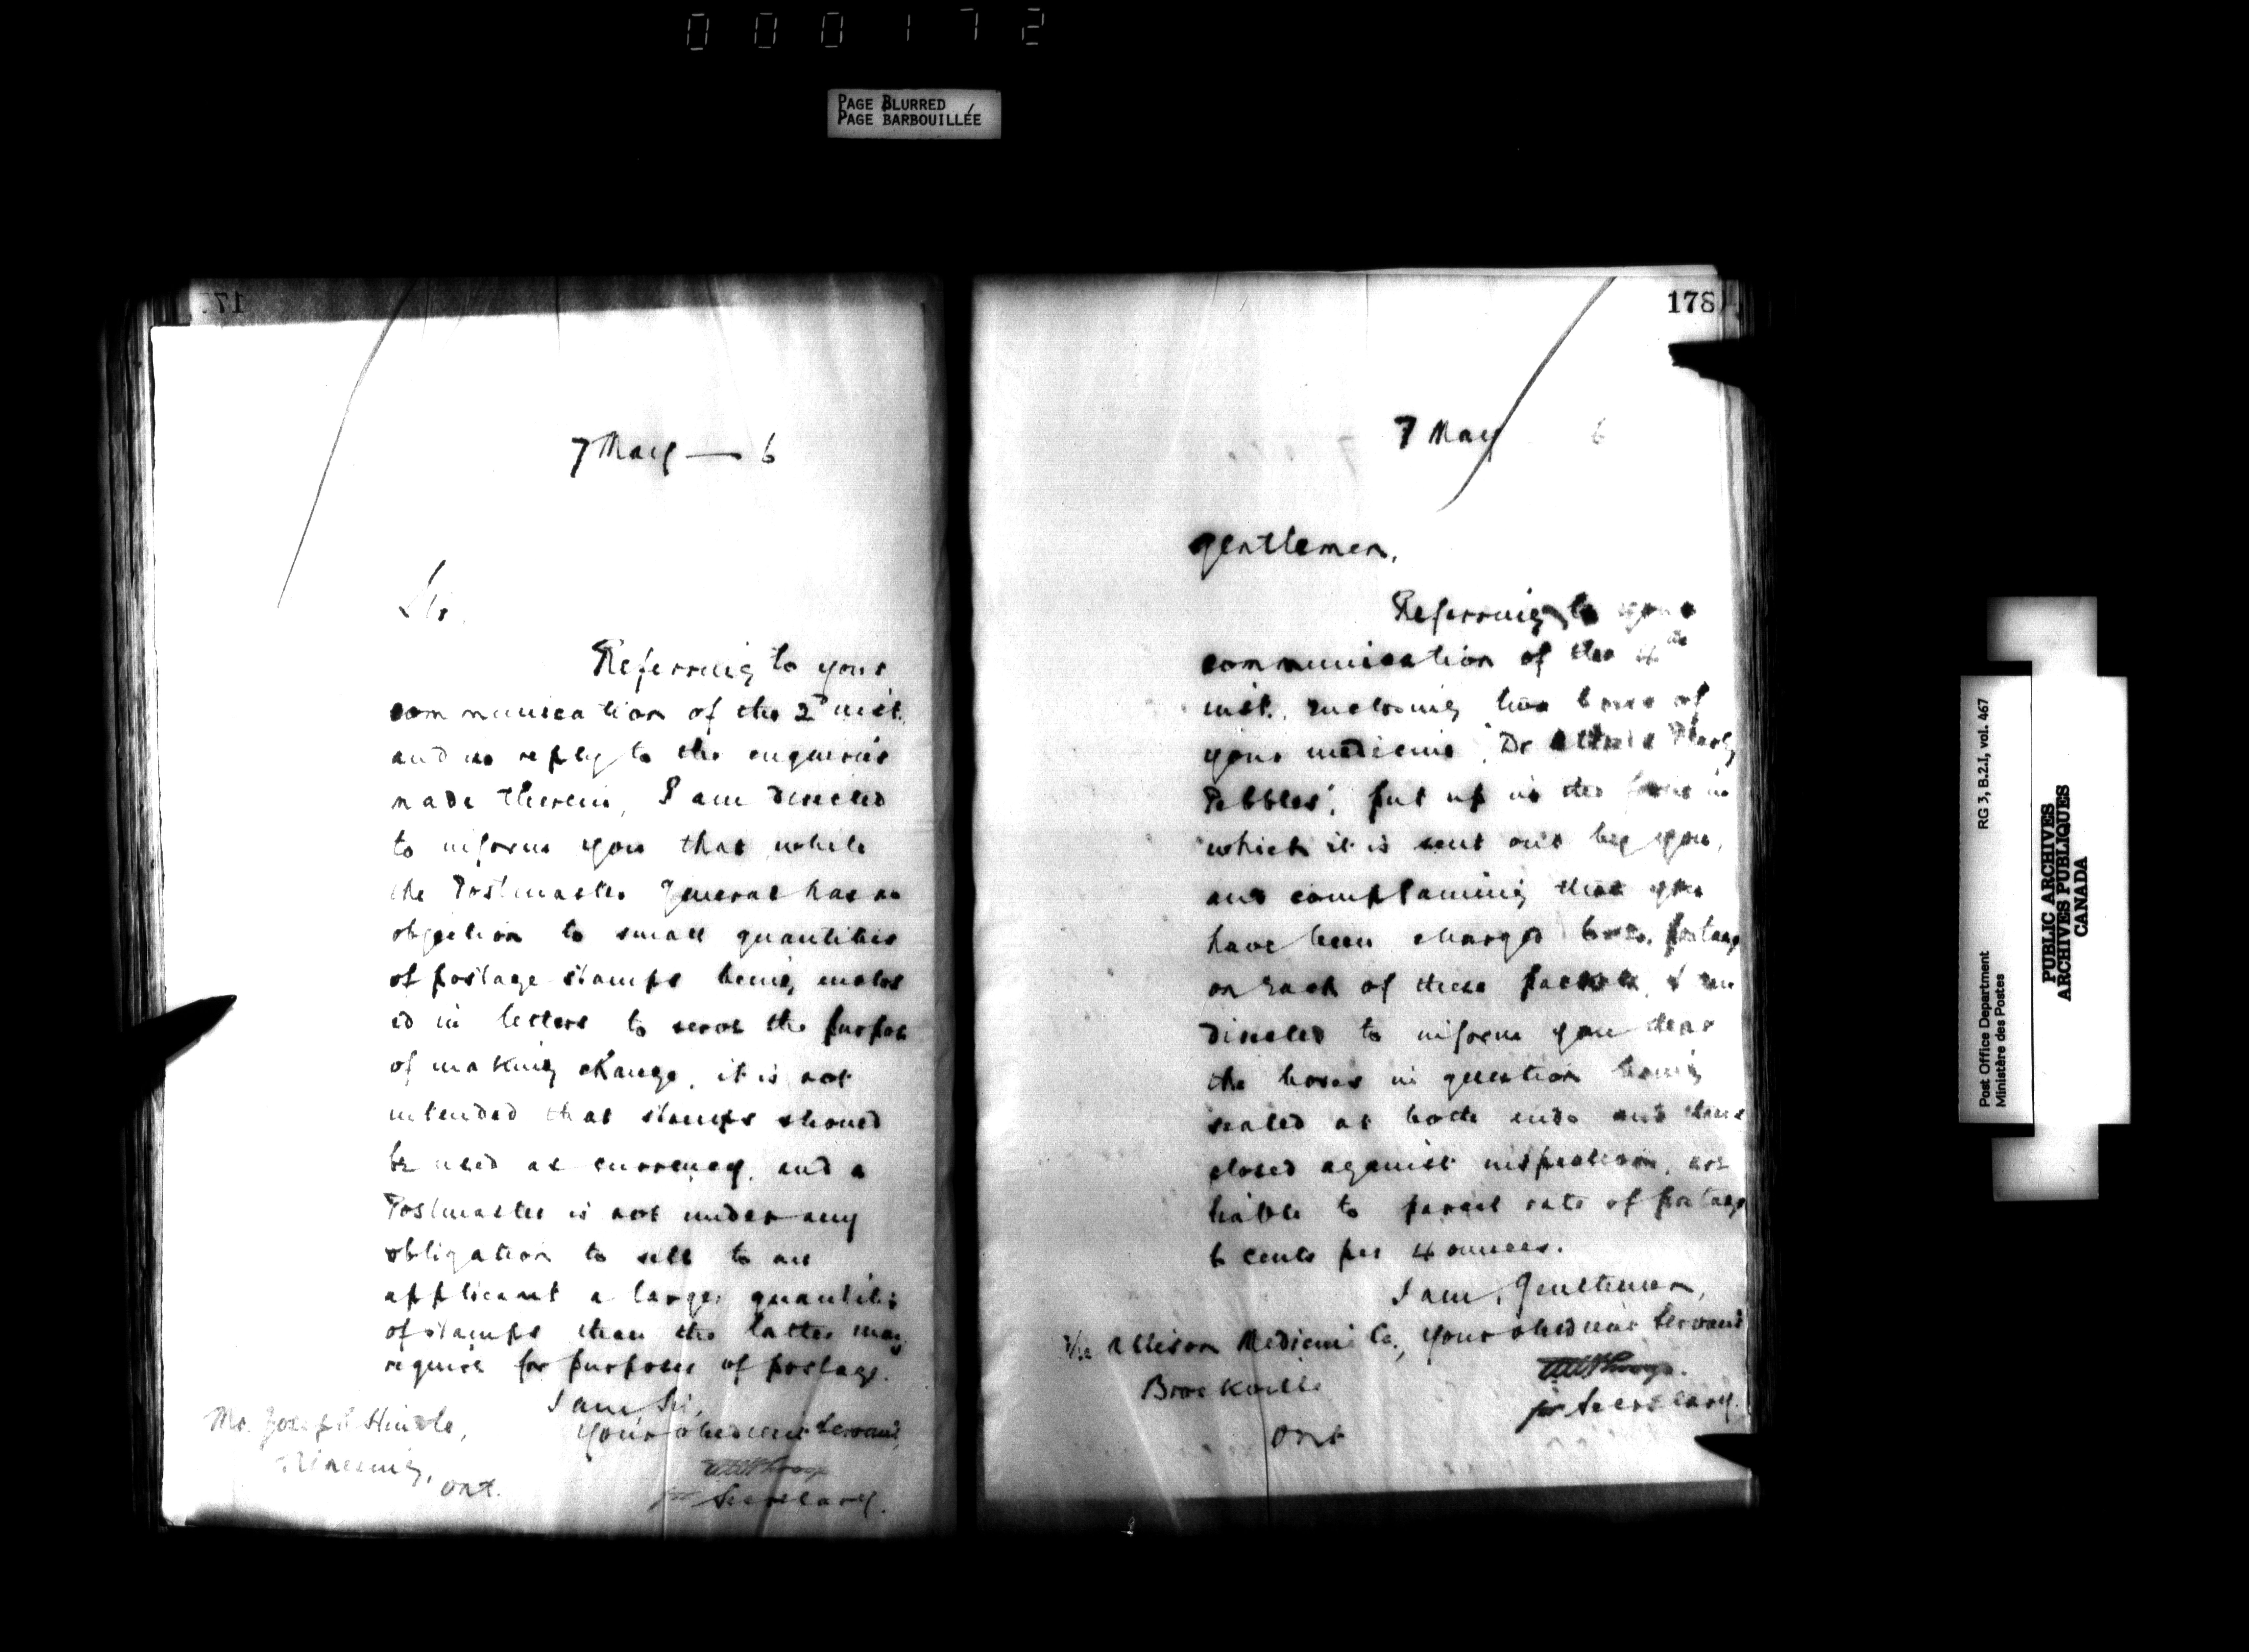 000172
PAGE BLURRED
PAGE BARBOUILLÉE
7 May — 6
Sir.
Referring to your
communication of the 2d inst.
and in reply to the enquiries
made therein, I am directed
to inform you that while
the Postmaster General has no
objection to small quantities
of postage stamps being enclos
ed in letters to serve the purpose
of making change, it is not
intended that stamps should
be used as currency, and a
Postmaster is not under any
obligation to sell to an
applicant a larger quantity
of stamps than the latter may
require for purposes of postage.
I am, Sir,
Your obedient Servant,
for Secretary.
Mr. Joseph
Ont.
178
7 May 6
Gentlemen,
Referring to your
communication of the 4th
inst. enclosing two boxes of
your medicine, "Dr
Pebbles", put up in the form in
which it is sent out by you,
and complaining that you
have been charged postage
on each of these I am
directed to inform you that
the boxes in question being
sealed at both ends and thus
closed against inspection, are
liable to parcel rate of postage
6 cents per 4 ounces.
I am, Gentlemen,
Your obedient Servant
for Secretary.
The Allison Medicine Co.,
Brockville
Ont
Post Office Department RG 3, B.2.I, vol. 467
Ministère des Postes
PUBLIC ARCHIVES
ARCHIVES PUBLIQUES
CANADA